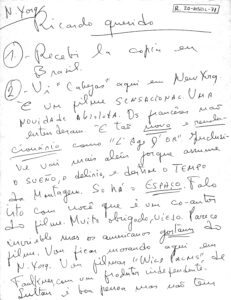 N. Xorq
R. 20-AGOL-71
Ricardo querido
1 - Recebi la copia em
Brasil
2 - Vi "Cabeças" aqui em New Xorq
E UM filme SENSACIONAL UMA
NOVIDADE ABSOLUTA. Os franceses não
entenderam. E tão novo e revolu-
cionário como "L'Age d'OR" Inclusi-
ve vai mais além porque assume
O SUEÑO, o delirio, e define o TEMPO
da Montagem. Só há o ESPAÇO. Falo
isto com você que é um co-autor
do filme. Muito obrigado, viejo. Parece
incrivel mas os americanos gostam do
filme. Vou ficar morando aqui em
N. Xorq. Vou filmar "WILD PALMS", de
Faulkner com um produtor independente.
é boa pessoa mas não tem